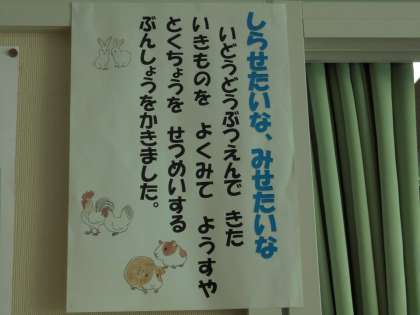 しらせたいな、みせたいな
いどうどうぶつえんで きた
いきものを よくみて ようすや
とくちょうを せつめいする
ぶんしょうをかきました。